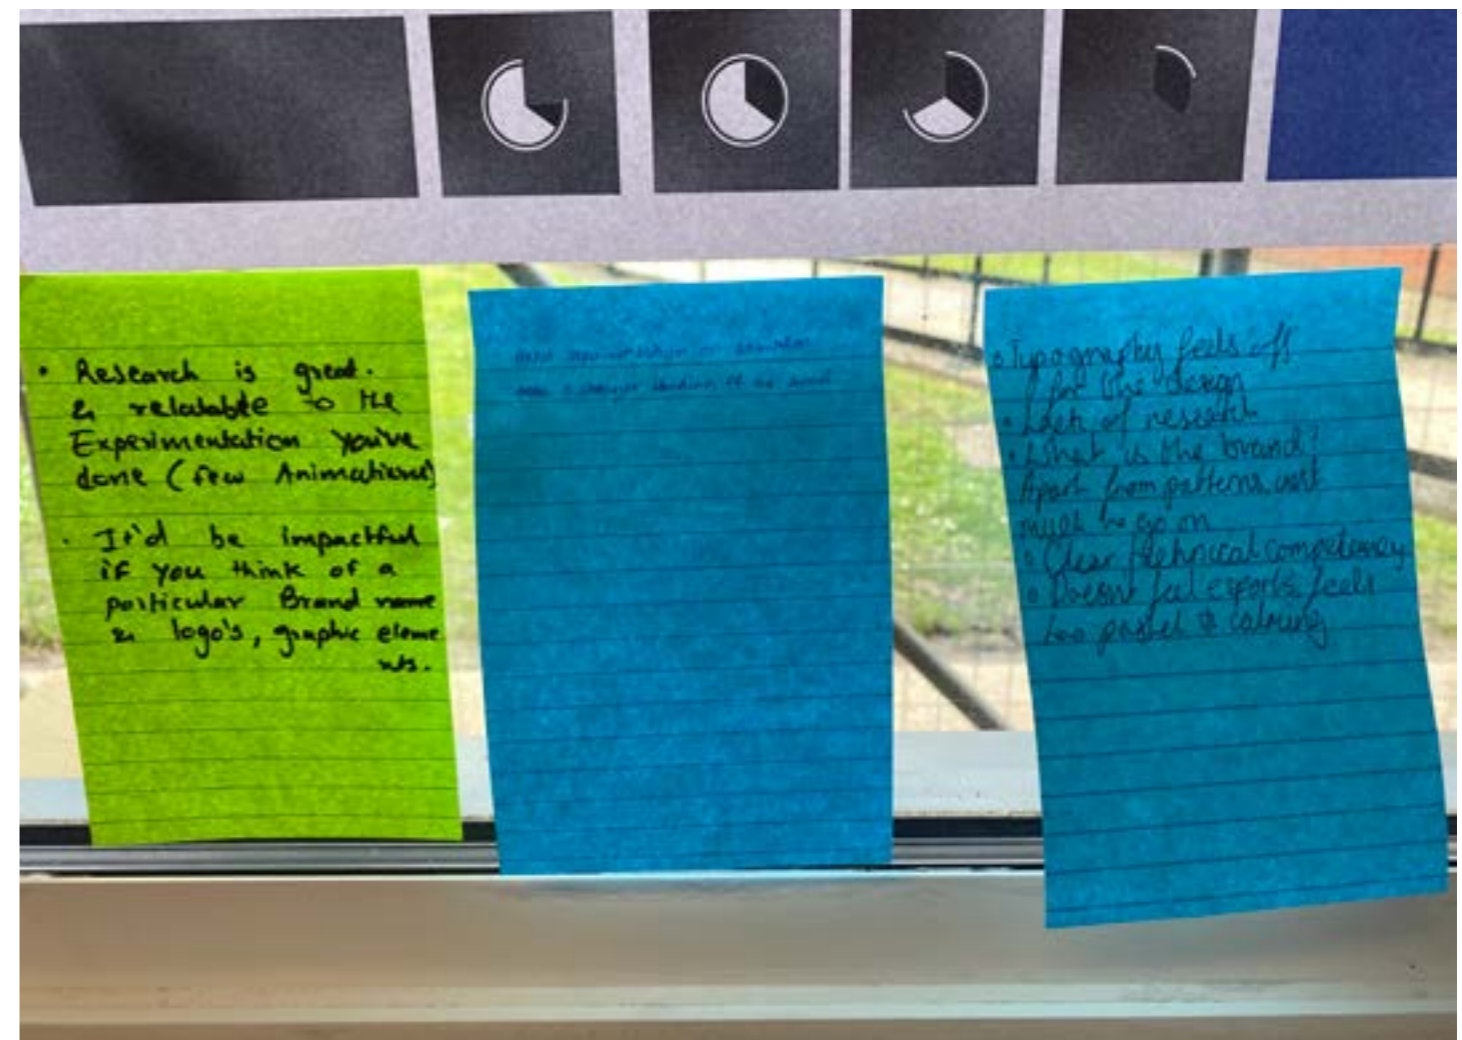 • Research is great.
& relatable to the
Experimentation you've
done (few Animations)
• It'd be impactful
if you think of a
particular Brand name
& logo's, graphic eleme
nts.
• Typography feels off
for the design
• Lack of research
• What is the brand?
Apart from patterns not
much to go on
• Clear technical competency
• Doesn't feel esports, feels
too pastel & calming